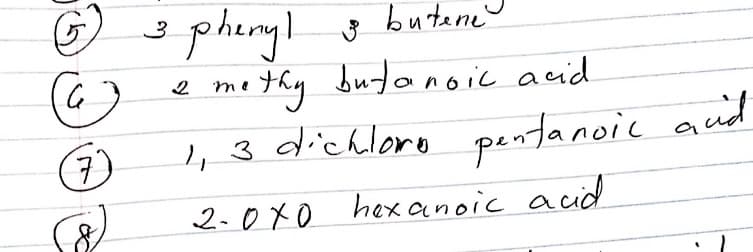 5) 3 phenyl 3 butene
6) 2 methy butanoic acid
7) 1, 3 dichloro pentanoic acid
8) 2-oxo hexanoic acid